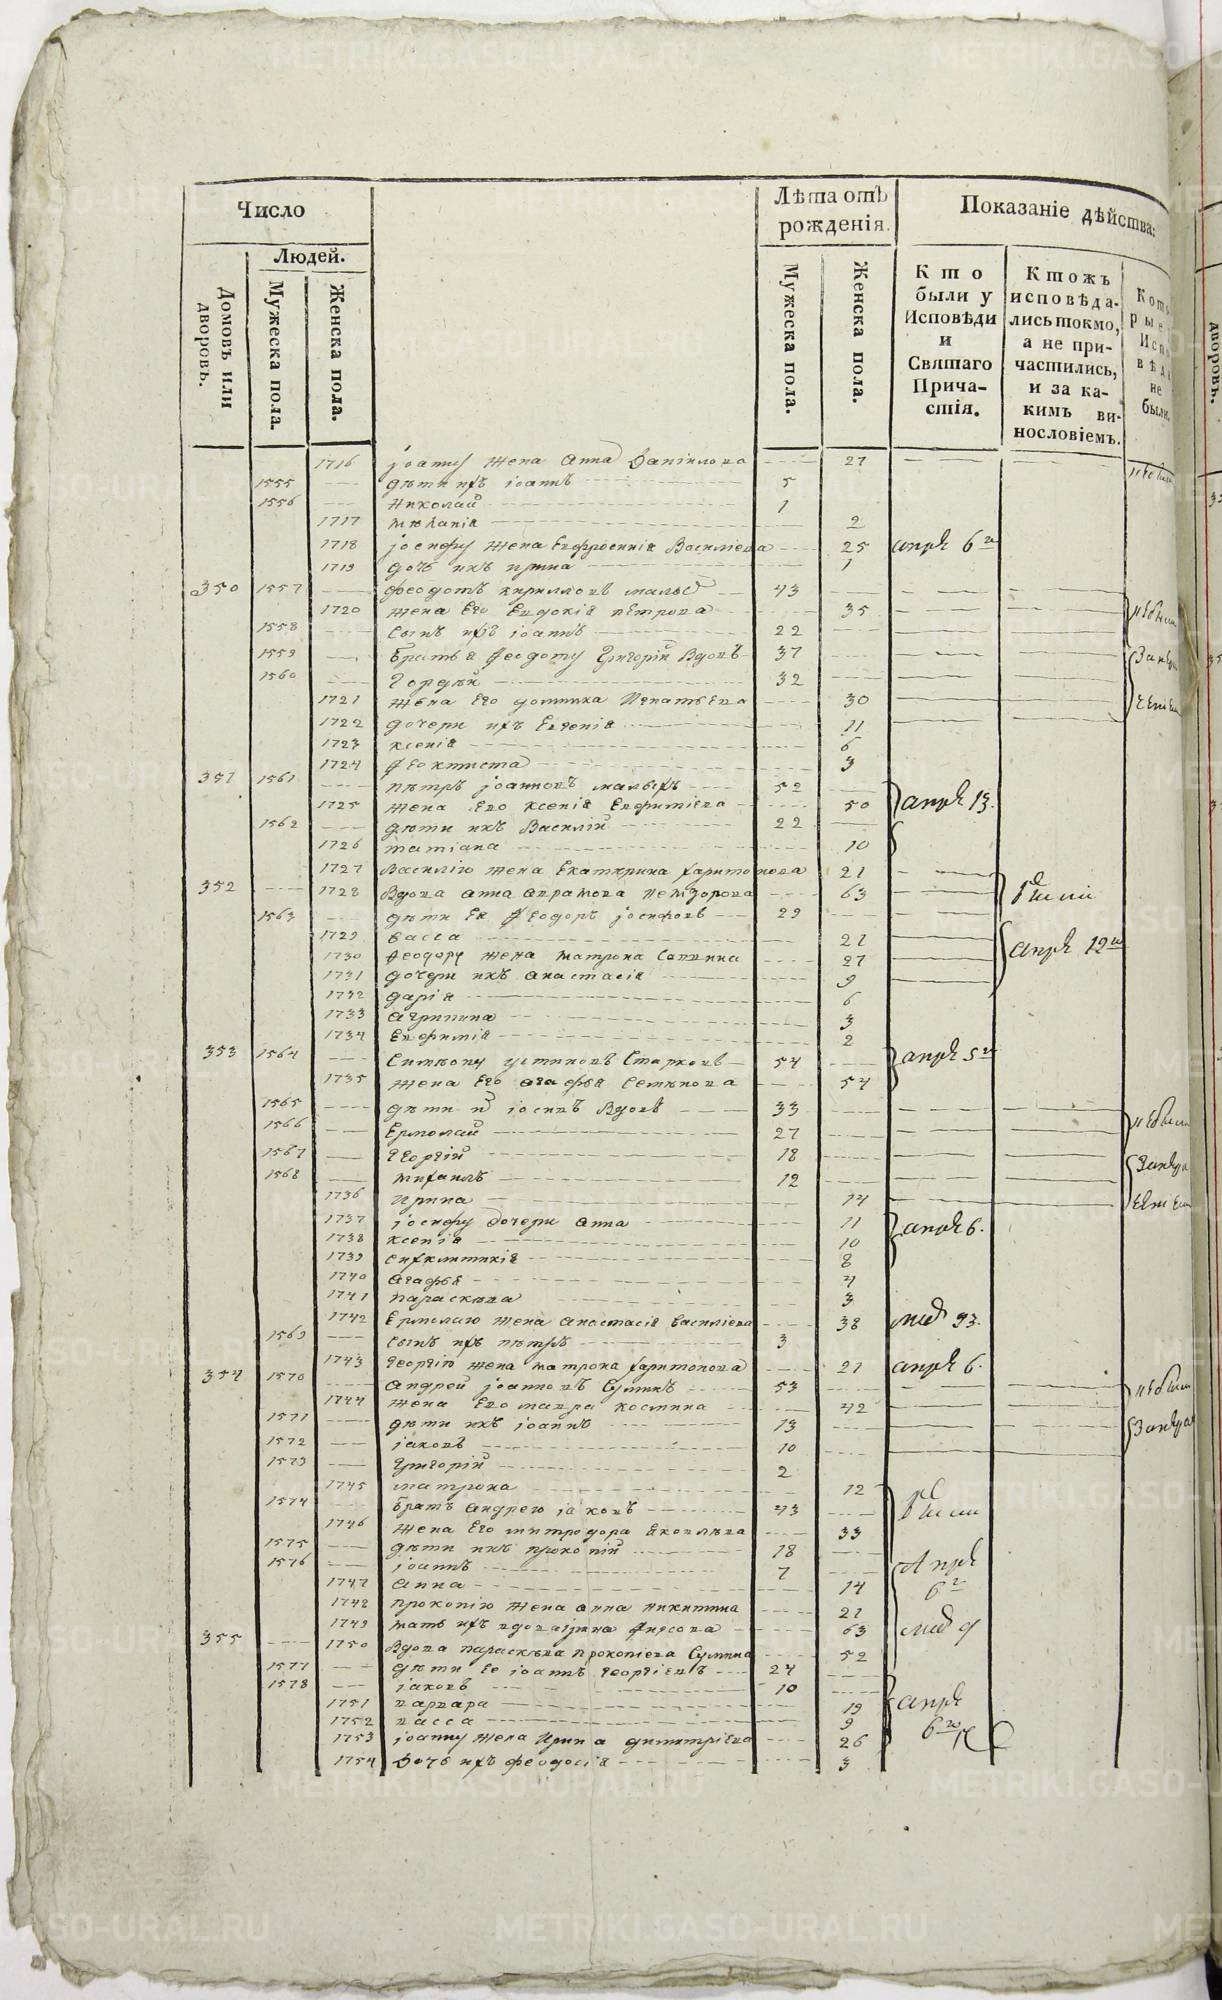 METRIKI.GASO-URAL.RU
Число
Лѣта отъ рожденія.
Показаніе дѣйства:
Людей.
Домовъ или дворовъ.
Мужеска пола.
Женска пола.
Мужеска пола.
Женска пола.
Кто были у Исповѣди и Святаго Причастія.
Ктожъ исповѣдались токмо, а не причастились, и за какимъ винословіемъ.
Которые Исповѣди не были.
1716 іоанну жена анна Даніилова 27
1555 дѣти ихъ іоаннъ 5
1556 николай 1
1717 мѣланіа 2
1718 іосифу жена Евфросиніа Василіева 25 апрѣ 6
1719 дочь ихъ ирина 1
350 1557 феодотъ кирилловъ малых 43
1720 жена Его Евдокіа петрова 35 не были
1558 сынъ ихъ іоаннъ 22
1559 братья Феодоту Григорій Вдовъ 37
1560 Гордѣй 32
1721 жена Его домника Игнатьева 30
1722 дочери ихъ Евгеніа 11
1723 ксеніа 6
1724 Феоктиста 3
351 1561 пѣтръ іоанновъ малыхъ 52
1725 жена Его Ксеніа Евфиміева 50 апрѣ 13.
1562 дѣти ихъ Василій 22
1726 татіана 10
1727 Василію жена Екатерина Харитонова 21
352 1728 Вдова анна аврамова 63
1563 дѣти Ея Феодоръ іосифовъ 29
1729 васса 21 апрѣ 12
1730 Феодору жена матрона Саввина 27
1731 дочери ихъ анастасіа 9
1732 даріа 6
1733 агрипина 3
1734 Евфиміа 2
353 1564 устиновъ Старковъ 54 апрѣ 5
1735 жена Его агафьа Семенова 54
1565 дѣти Вдовъ 33
1566 Ермолай 27 не были
1567 Георгій 18
1568 михаилъ 12
1736 Ирина 14
1737 іосифу дочери анна 11 апрѣ 6.
1738 ксеніа 10
1739 синклитикіа 8
1740 агафьа 4
1741 параскева 3
1742 Ермолаю жена анастасіа василіева 38 23.
1569 сынъ ихъ пѣтръ 3
1743 Георгію жена матрона Харитонова 21 апрѣ 6.
354 1570 андрей іоанновъ 53 не были
1744 жена Его мавра космина 42
1571 дѣти ихъ іоаннъ 13
1572 іаковъ 10
1573 Григорій 2
1745 матрона 12
1574 братъ андрею іаковъ 43
1746 жена Его митродора Яковлева 33
1575 дѣти ихъ прокопій 18
1576 іоаннъ 7 Апрѣ
1747 анна 14 6
1748 прокопію жена анна никитина 21
1749 мать ихъ вдова ирина Фирсова 63
355 1750 Вдова параскева прокопіева 52
1577 дѣти Ее іоаннъ Георгіевъ 24
1578 іаковъ 10
1751 варвара 19 апрѣ
1752 васса 9 6
1753 іоанну жена Ирина димитріева 26
1754 Дочь ихъ феодосіа 3